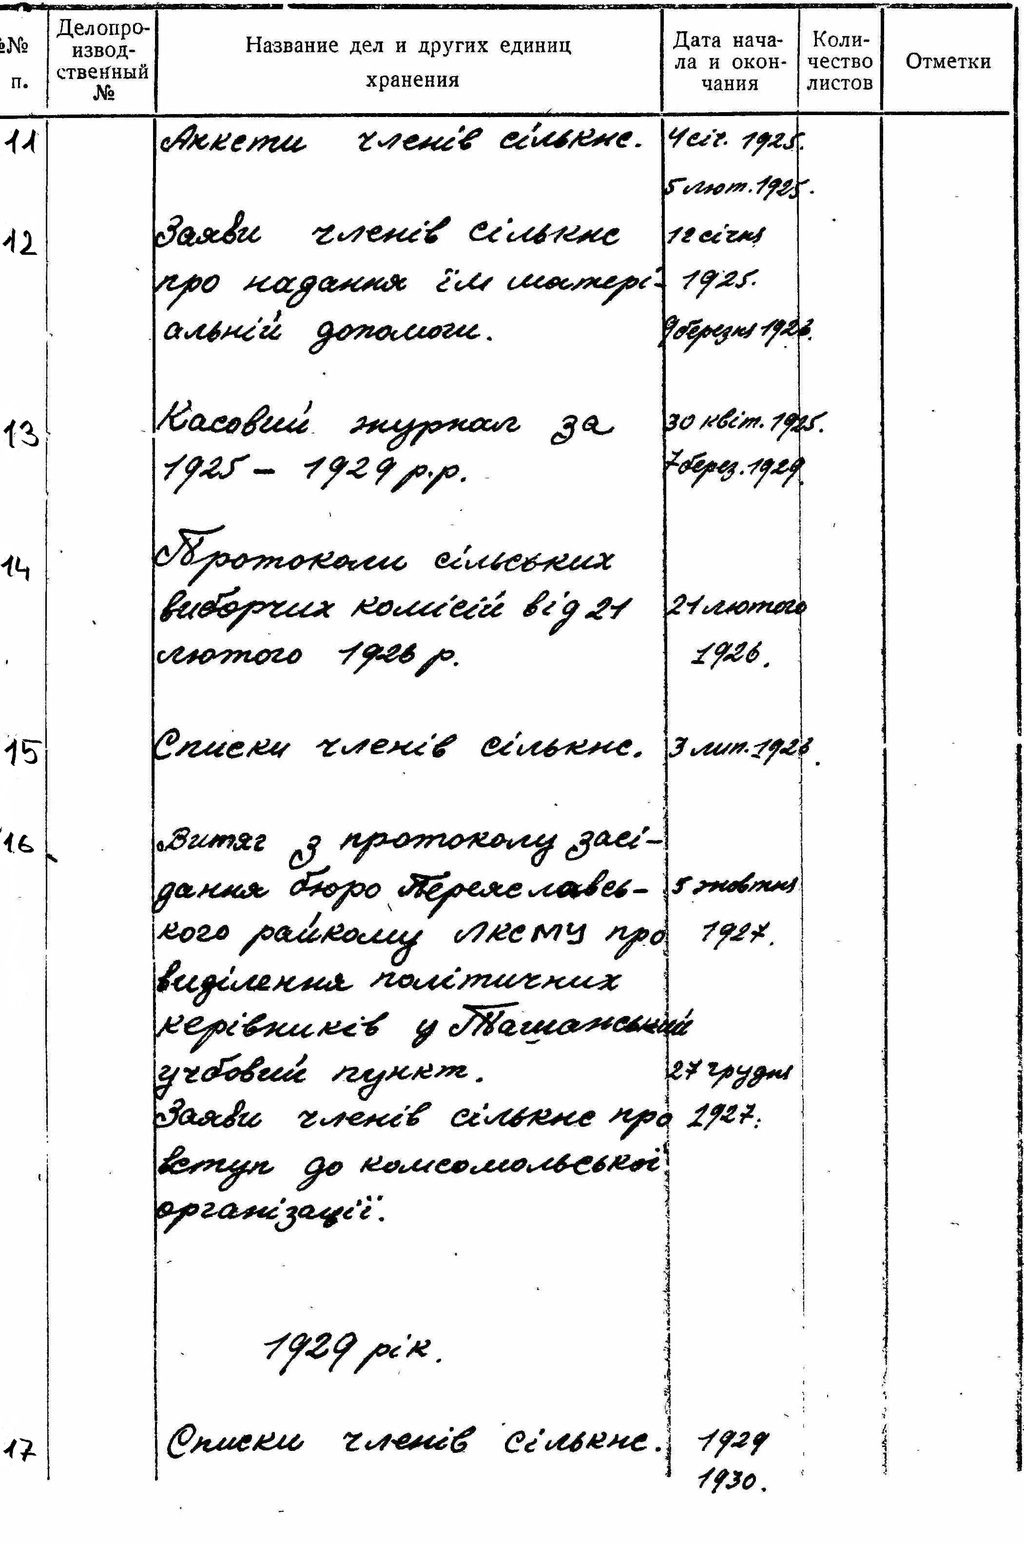 №№ п.
Делопро-
извод-
ственный
№
Название дел и других единиц
хранения
Дата нача-
ла и окон-
чания
Коли-
чество
листов
Отметки
11 Анкети членів сількнс. 4 січ. 1925.
5 лют. 1925.
12 Заяви членів сількнс 12 січня
про надання їм матері- 1925.
альній допомоги. 9 березня 1926.
13 Касовий журнал за 30 квіт. 1925.
1925 – 1929 р.р. 7 берез. 1929.
14 Протоколи сільських
виборчих комісій від 21 21 лютого
лютого 1926 р. 1926.
15 Списки членів сількнс. 3 лип. 1926.
16 Витяг з протоколу засі-
дання бюро Переяславсь- 5 жовтня
кого райкому ЛКСМУ про 1927.
виділення політичних
керівників у Ташанський
учбовий пункт. 27 грудня
Заяви членів сількнс про 1927.
вступ до комсомольської
організації.
1929 рік.
17 Списки членів сількнс. 1929
1930.